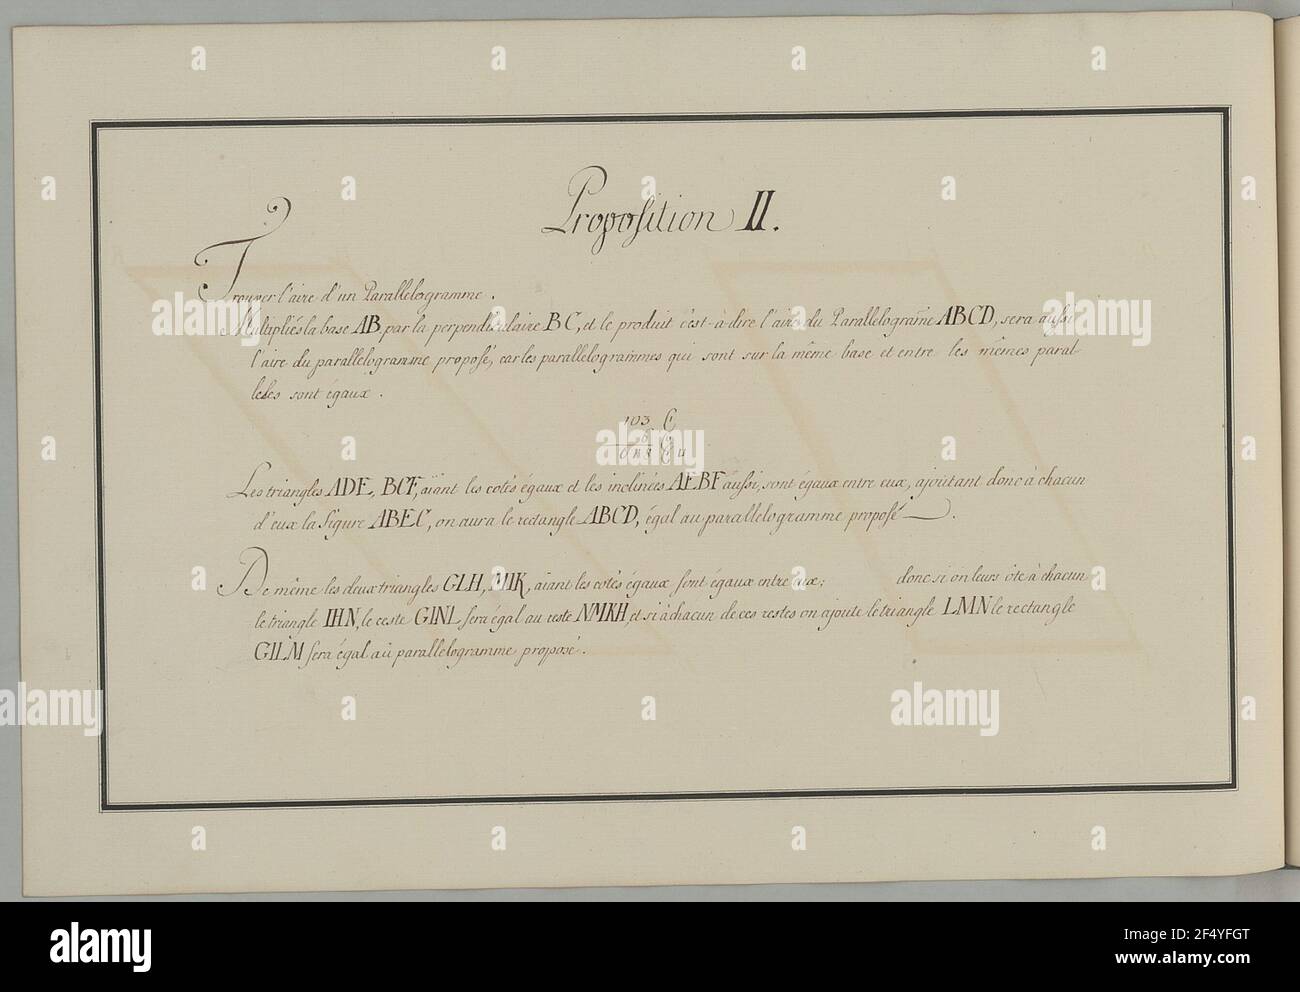 Proposition II.
Trouver l'aire d'un Parallelogramme.
Multipliés la base AB par la perpendiculaire BC, et le produit c'est-à-dire l'aire du Parallelograme ABCD, sera aussi
l'aire du parallelogramme proposé, car les parallelogrammes qui sont sur la même base et entre les mêmes paral-
leles sont égaux.
103
Les triangles ADE, BCF, aïant les cotés égaux et les inclinées AE BF aussi, sont égaux entre eux, ajoutant donc à chacun
d'eux la figure ABEC, on aura le rectangle ABCD, égal au parallelogramme proposé.
De même les deux triangles GLH, MIK, aïant les cotés égaux sont égaux entre eux; donc si on leurs ôte à chacun
le triangle IHN, le reste GINL sera égal au reste NMKH, et si à chacun de ces restes on ajoute le triangle LMN le rectangle
GILM sera égal au parallelogramme proposé.
alamy
alamy
alamy
alamy
alamy
alamy
alamy
Image ID: 2F4YFGT
www.alamy.com